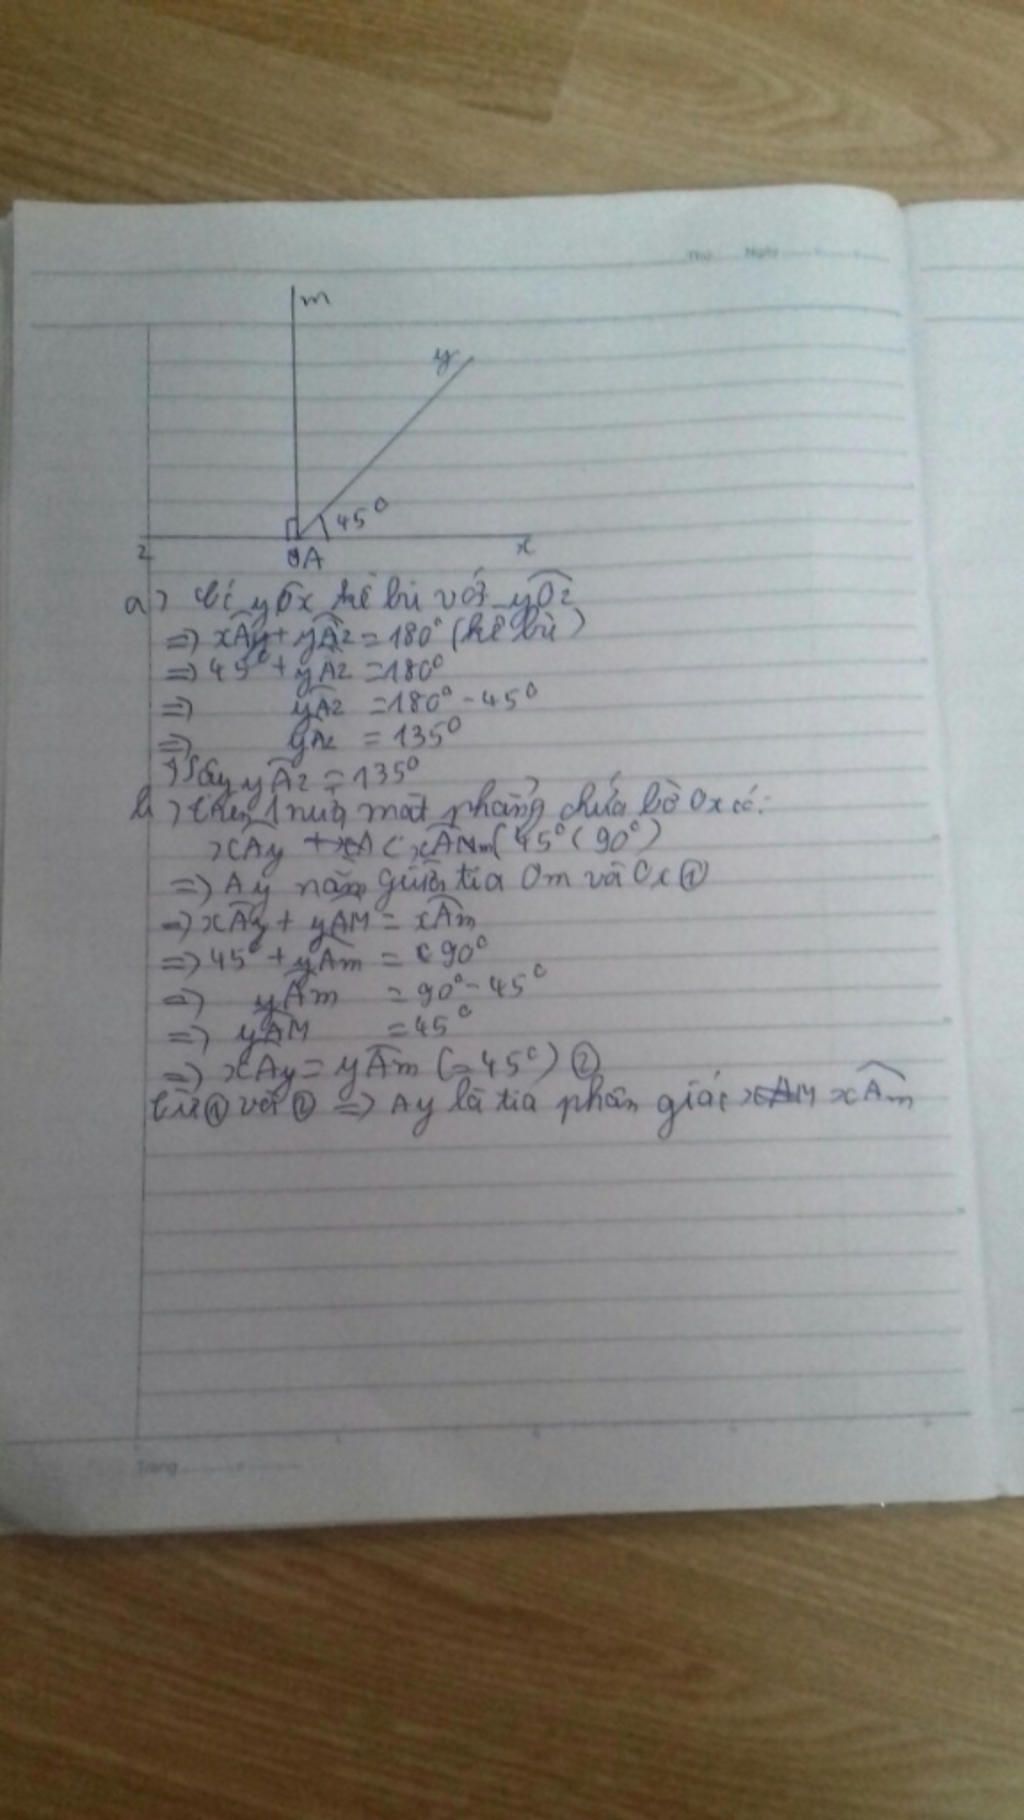 Thứ Ngày
m
y
45°
z A x
a) Vì yOx kề bù với yOz
=> xAy + yAz = 180° (kề bù)
=> 45° + yAz = 180°
=> yAz = 180° - 45°
=> yAz = 135°
Vậy yAz = 135°
b) trên 1 nửa mặt phẳng chứa bờ Ox có:
xAy < xAm (45° < 90°)
=> Ay nằm giữa tia Om và Ox ①
=> xAy + yAM = xAm
=> 45° + yAm = 90°
=> yAm = 90° - 45°
=> yAM = 45°
=> xAy = yAm (= 45°) ②
từ ① và ② => Ay là tia phân giác xAm
Trang